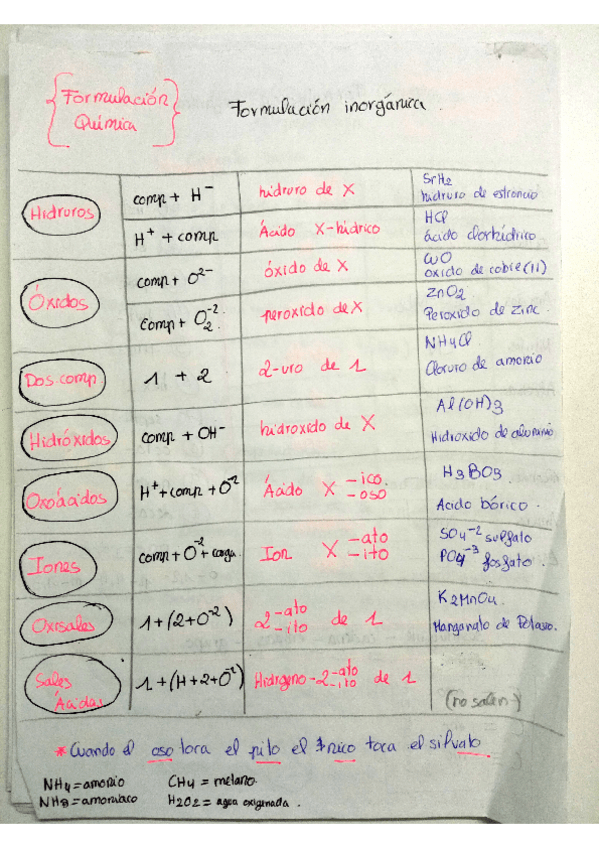 Formulación
Química
Formulación inorgánica.
Hidruros
comp + H⁻
hidruro de X
SrH2
hidruro de estroncio
H⁺ + comp
Ácido X-hídrico
HCl
ácido clorhídrico
Óxidos
comp + O²⁻
óxido de X
CuO
óxido de cobre (II)
comp + O₂⁻².
peroxido de X
ZnO2
Peroxido de Zinc.
Dos comp.
1 + 2
2-uro de 1
NH4Cl
Cloruro de amonio
Hidróxidos
comp + OH⁻
hidroxido de X
Al(OH)3
Hidroxido de aluminio
Oxoácidos
H⁺ + comp + O⁻²
Ácido X -ico.
-oso
H3BO3
Acido bórico.
Iones
comp + O⁻² + carga
Ion X -ato
-ito
SO4⁻² sulfato
PO4⁻³ fosfato.
Oxisales
1 + (2 + O⁻²)
2 -ato de 1
-ito
K2MnO4.
Manganato de Potasio.
Sales
Ácidas
1 + (H + 2 + O⁻²)
Hidrgeno - 2 -ato de 1
-ito
(no salen)
* Cuando el oso toca el pito el
nico toca el silvato
NH4 = amonio CH4 = metano.
NH3 = amoniaco H2O2 = agua oxigenada.